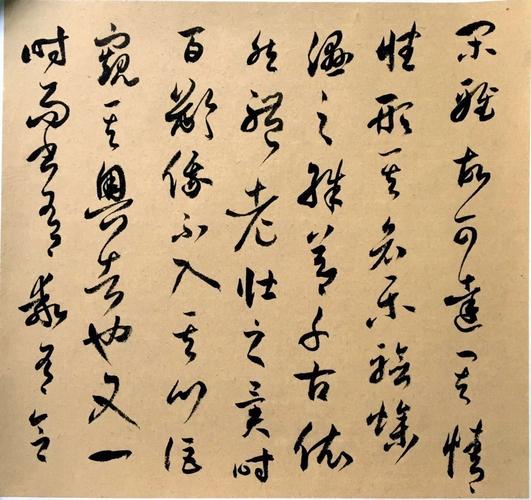 閑雅故可達其情
性形其哀樂驗燥
濕之殊節千古依
然體老壯之異時
百齡俄不入其門詎
窺其奧者也又一
時而書有乖有合